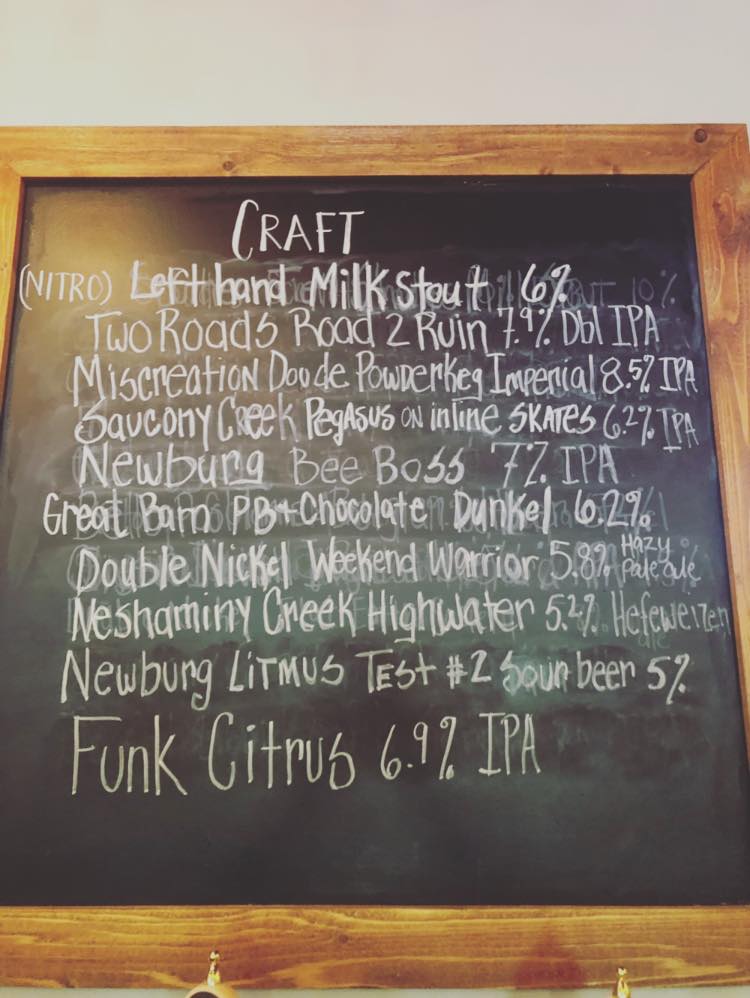 CRAFT
(NITRO) Left hand Milk Stout 6%
Two Roads Road 2 Ruin 7.9% Dbl IPA
Miscreation Doude Powderkeg Imperial 8.5% IPA
Saucony Creek Pegasus on inline skates 6.2% IPA
Newburg Bee Boss 7% IPA
Great Barn PB+Chocolate Dunkel 6.2%
Double Nickel Weekend Warrior 5.8% Hazy Pale ale
Neshaminy Creek Highwater 5.2% Hefeweizen
Newburg Litmus Test #2 Sour beer 5%
Funk Citrus 6.9% IPA